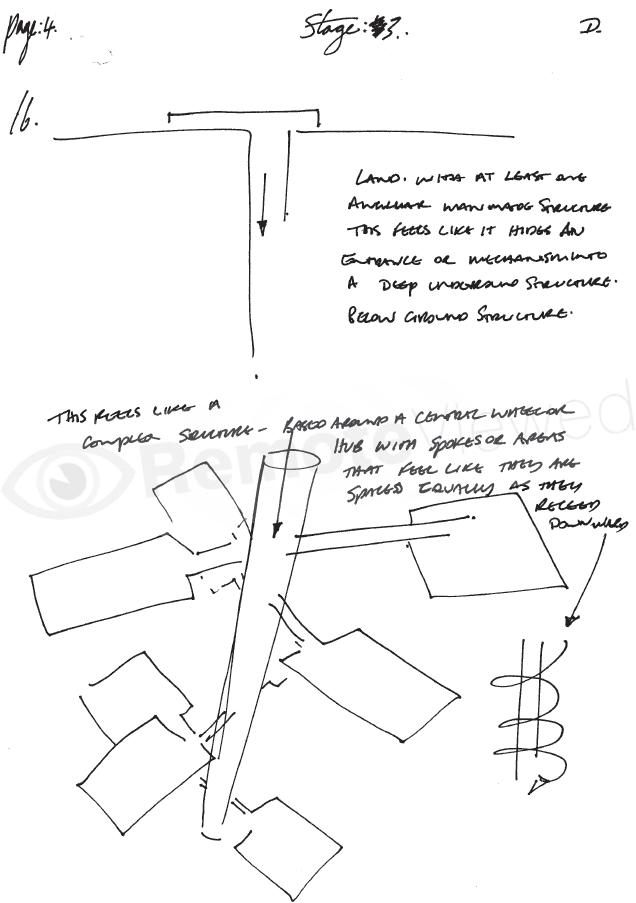 page:4.
Stage: 3..
D.
16.
LAND. WITH AT LEAST ONE
ANGULAR MANMADE STRUCTURE
THIS FEELS LIKE IT HIDES AN
ENTRANCE OR MECHANISM INTO
A DEEP UNDERGROUND STRUCTURE.
BELOW GROUND STRUCTURE.
THIS FEELS LIKE A
COMPLEX STRUCTURE - BASED AROUND A CENTRAL WHEEL OR
HUB WITH SPOKES OR AREAS
THAT FEEL LIKE THEY ARE
SPACED EQUALLY AS THEY
RECEED
DOWNWARD
RemoteViewed